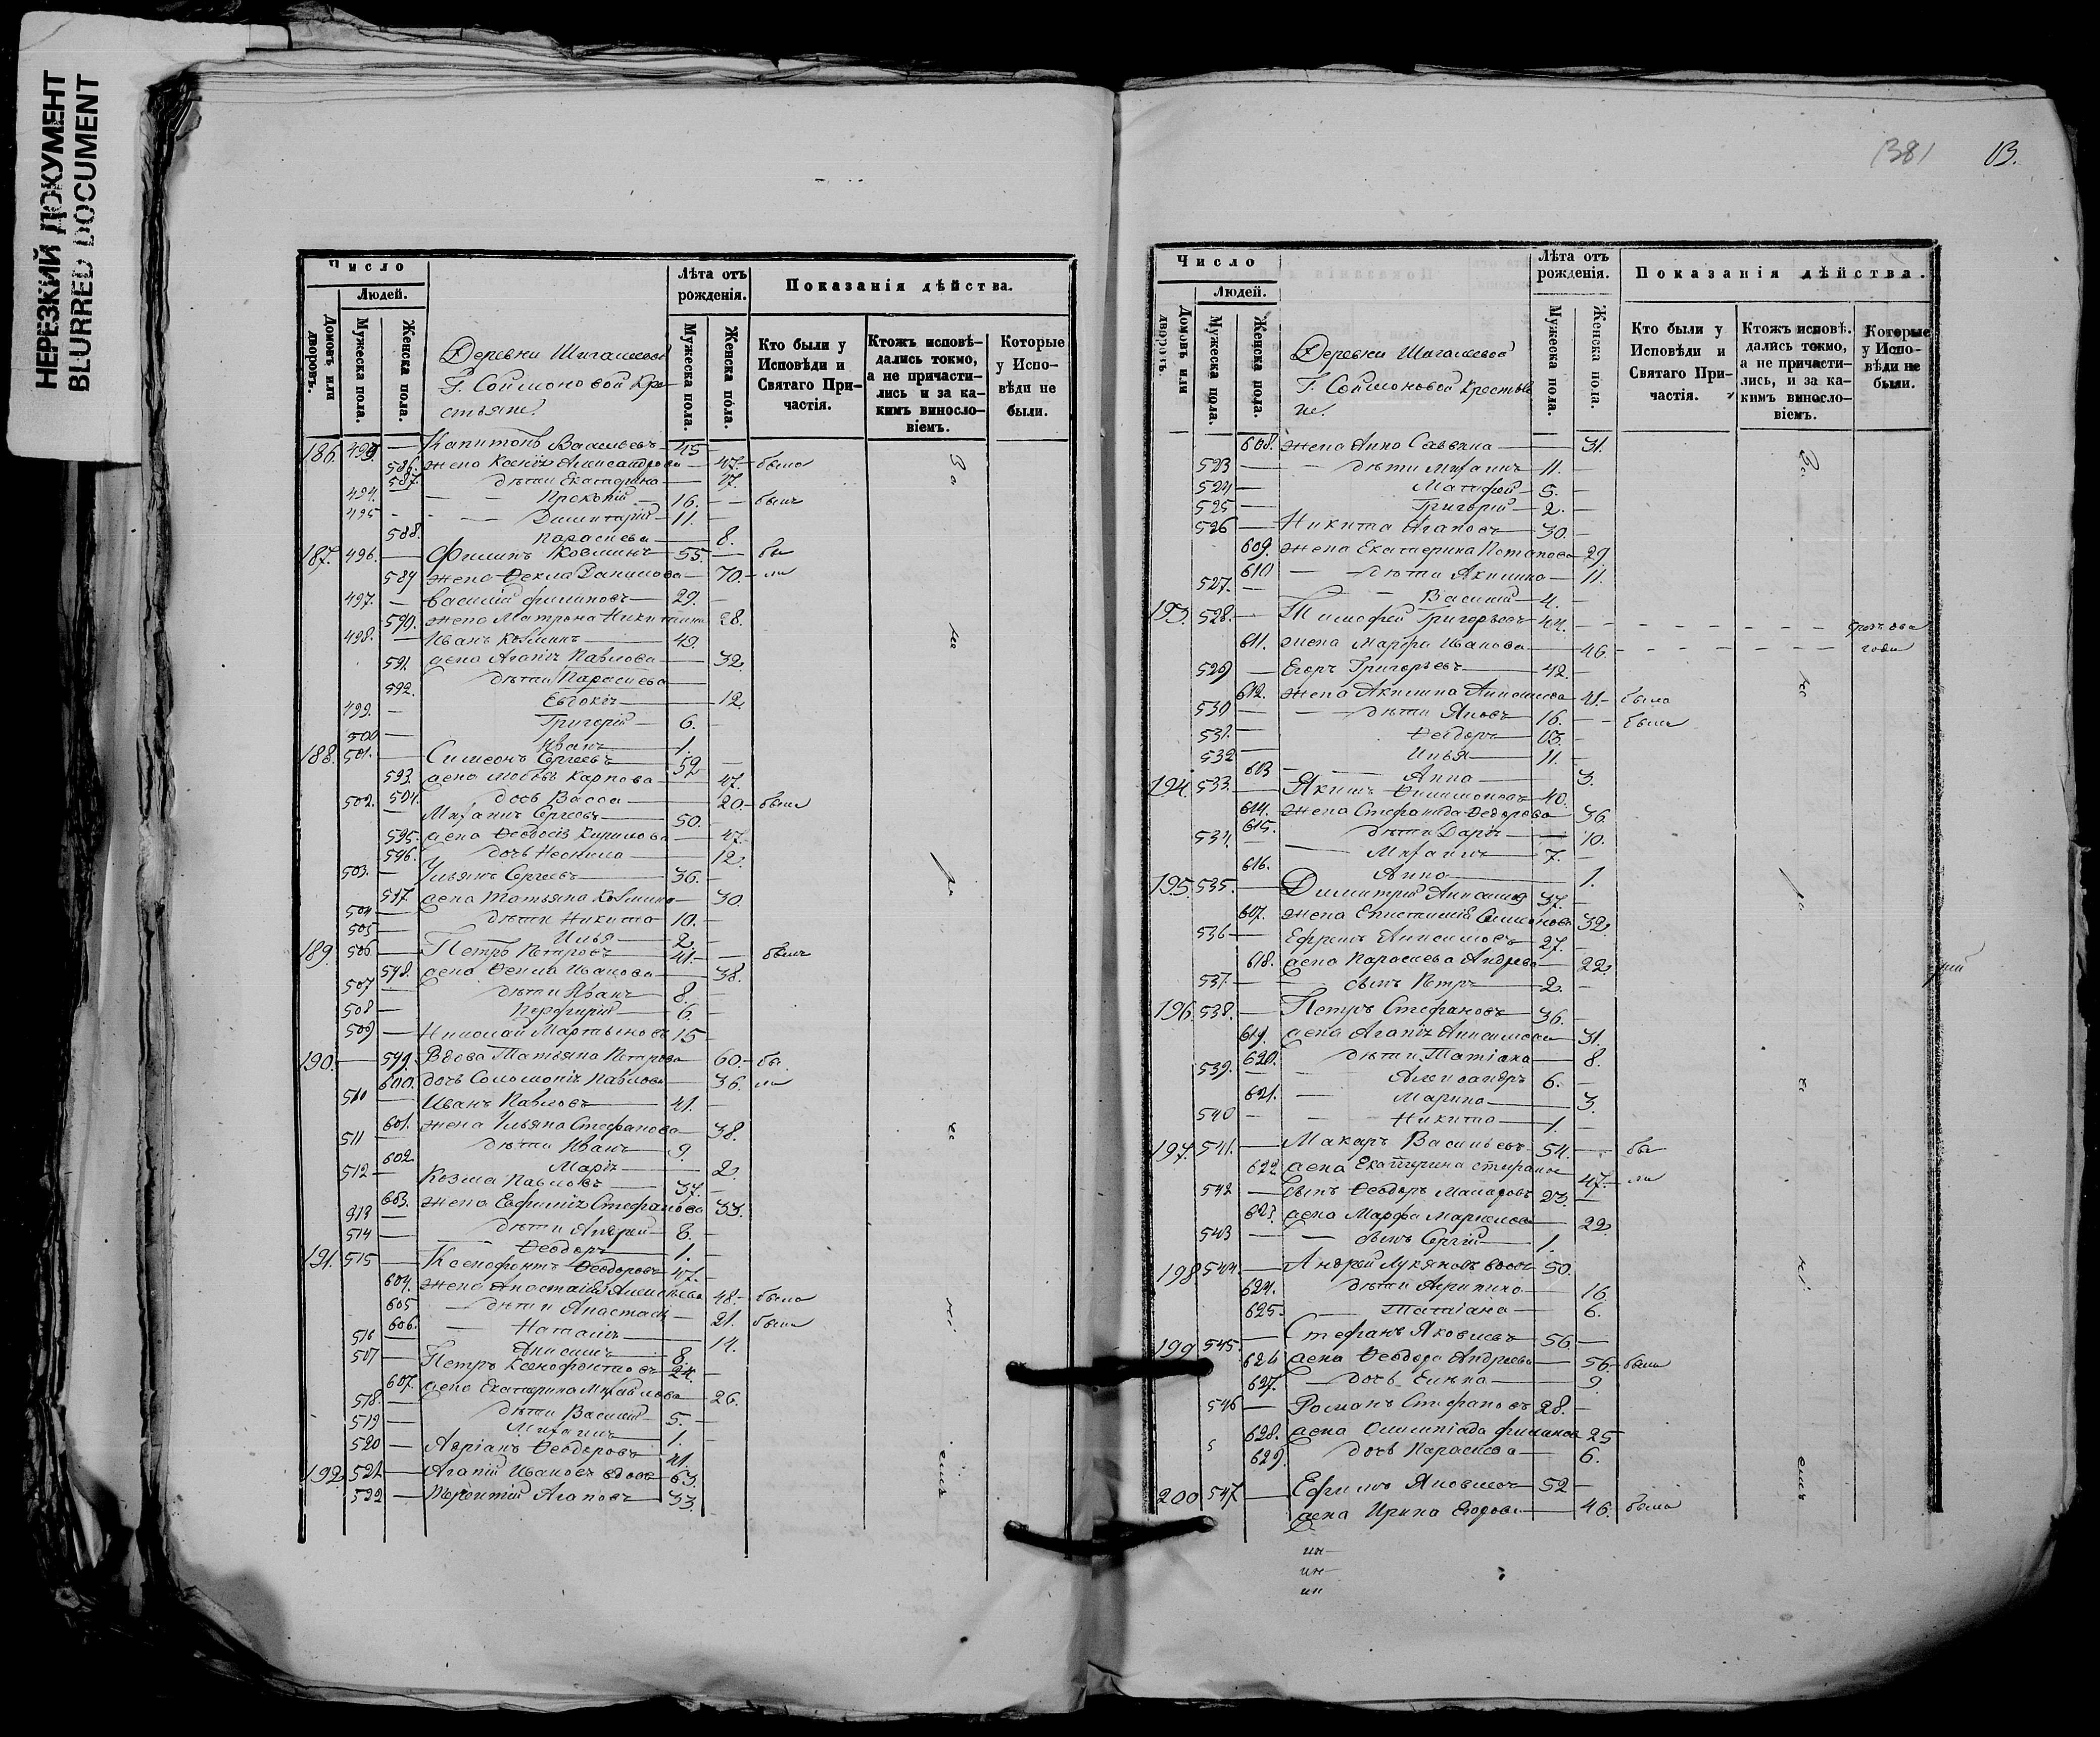 НЕРЕЗКИЙ ДОКУМЕНТ
BLURRED DOCUMENT
Число
Людей.
Домовъ или дворовъ.
Мужеска пола.
Женска пола.
Деревни Шигалеевой
Г. Соймоновой Кре-
стьяне.
Лѣта отъ рожденія.
Мужеска пола.
Женска пола.
Показанія дѣйства.
Кто были у Исповѣди и Святаго При-частія.
Ктожъ исповѣ-дались токмо, а не причасти-лись и за ка-кимъ винослo-віемъ.
Которые у Испо-вѣди не были.
186. 493. — Капитонъ Васильевъ — 45 —
586. жена Ксенія Александрова — 47. — была
587. дѣти Екатерина — 17.
494. — Прокопій — 16. — — былъ
495 — Димитрій — 11. —
588. Параскева — 8.
187. 496. — Филипъ Козминъ — 55 — бы
589 жена Ѳекла Данилова — 70. — ли
497. — Василій Филиповъ — 29. —
590. жена Матрона Никитина 28.
498. — Иванъ Козминъ — 49.
591. жена Агапія Павлова — 32
592. дѣти Параскева —
Евдокія — 12.
499. — Григорій — 6. —
500 — Иванъ — 1.
188. 501. — Симеонъ Сергеевъ — 52 —
593. жена Любовь Карпова — 47.
502. 594. дочь Васса — 20 — была
Михаилъ Сергеевъ — 50.
595. жена Ѳеодосія Кирилова — 47.
596. дочь Неонила — 12.
503. — Ульянъ Сергеевъ — 36. —
597 жена Татьяна Козмина — 30.
504 — дѣти Никита — 10. —
505 — Илья — 2. —
189. 506 — Петръ Петровъ — 41. — былъ
598. жена Ѳекла Иванова — 38.
507 — дѣти Иванъ — 8. —
508 — Порфирій — 6. —
509 — Николай Мартыновъ 15 —
190. — 599. Вдова Татьяна Петрова — 60 — бы
600. дочь Соломонія Павлова — 36. ли
510 — Иванъ Павловъ — 41. —
601. жена Ульяна Стефанова — 38.
511 — дѣти Иванъ — 9.
602. Марія — 2.
512 — Козма Павловъ — 37. —
603. жена Евфимія Стефанова 33.
513 —
514 — дѣти Андрей — 6. —
Ѳеодоръ — 1. —
191. 515 — Ксенофонтъ Ѳеодоровъ 47. —
604. жена Анастасія Алексѣева 48. — была
605 — дѣти Анастасія — 21. была
606. — Наталія — 14.
516 — Анисимъ — 8.
507 — Петръ Ксенофонтовъ 24. —
607. жена Екатерина Михайлова — 26.
518. — дѣти Василій — 5. —
519 — Михаилъ — 1. —
520 — Адріанъ Ѳеодоровъ — 41.
192. 521. — Агапій Ивановъ вдовъ 63.
522 — Терентій Агаповъ — 33.
За
не
ма
ло
ніемъ
381 13.
Число
Людей.
Домовъ или дворовъ.
Мужеска пола.
Женска пола.
Деревни Шигалеевой
Г. Соймоновой Крестья
не.
Лѣта отъ рожденія.
Мужеска пола.
Женска пола.
Показанія дѣйства.
Кто были у Исповѣди и Святаго При-частія.
Ктожъ исповѣ. дались токмо, а не причасти-лись, и за ка-кимъ винослo-віемъ.
Которые у Испо-вѣди не были.
608. жена Анна Савьвина — 31.
523 — дѣти Михаилъ — 11. —
524 — Матфей — 5. —
525 — Григорій — 2. —
526 — Никита Агаповъ — 30. —
609. жена Екатерина Потапова — 29.
610 — дѣти Акилина — 11.
527. — Василій — 4. —
193. 528. — Тимофей Григорьевъ — 44.
611. жена Марфа Иванова — 46.
529 — Егоръ Григорьевъ — 42. —
612. жена Акилина Анисимова 41. — была
530 — дѣти Яковъ — 16. — былъ
531. — Ѳеодоръ — 13. —
532 — Илья — 11. —
613 — Анна — 3.
194. 533. — Якимъ — 40.
614. жена Стефанида Ѳедорова 36
615. дѣти Дарія — 10.
534. — Михаилъ — 7. —
616. Анна — 1.
195. 535. — Димитрій Анисимовъ 37. —
607. жена Епистимія Симеонова 32.
536 — Ефремъ Анисимовъ — 27. —
618. жена Параскева Андреева — 22.
537. — сынъ Петръ — 2. —
196. 538. — Петръ Стефановъ — 36. —
619. жена Агапія Анисимова — 31.
620. дѣти Татіана — 8.
539. — Александръ 6. —
621. — Марина — 3.
540 — Никита — 1. —
197. 541. — Макаръ Васильевъ 54. — бы
622 жена Екатерина 47. — ли
542 — сынъ Ѳеодоръ Макаровъ 23. —
623. жена Марфа Маркелова — 22.
543 — сынъ Сергій — 1.
198 544. — Андрей Лукяновъ вдовъ 50.
624. дѣти Агрипина — 16
625. — Татіана — 6.
199 545. — Стефанъ Яковлевъ — 56 —
626 жена Ѳеодора Андреева — 56. — была
627. — дочь Елена — 9
546 — Романъ Стефановъ 28. —
628. жена Олимпіада Филипова 25
629. дочь Параскева — 6.
200 547 — Ефимъ Яковлевъ — 52 —
жена Ирина Егорова — 46. была